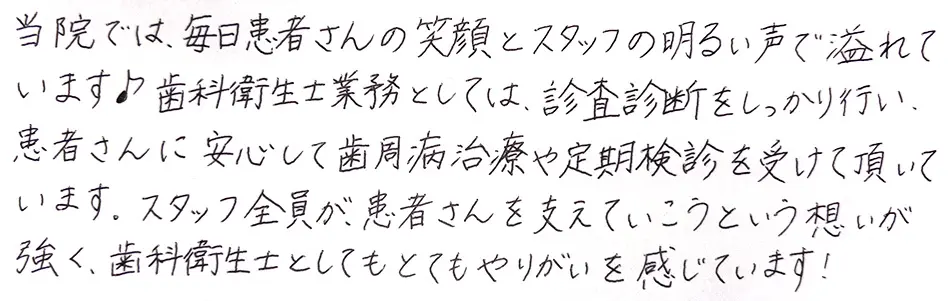 当院では、毎日患者さんの笑顔とスタッフの明るい声で溢れて
います♪歯科衛生士業務としては、診査診断をしっかり行い、
患者さんに安心して歯周病治療や定期検診を受けて頂いて
います。スタッフ全員が、患者さんを支えていこうという想いが
強く、歯科衛生士としてもとてもやりがいを感じています！